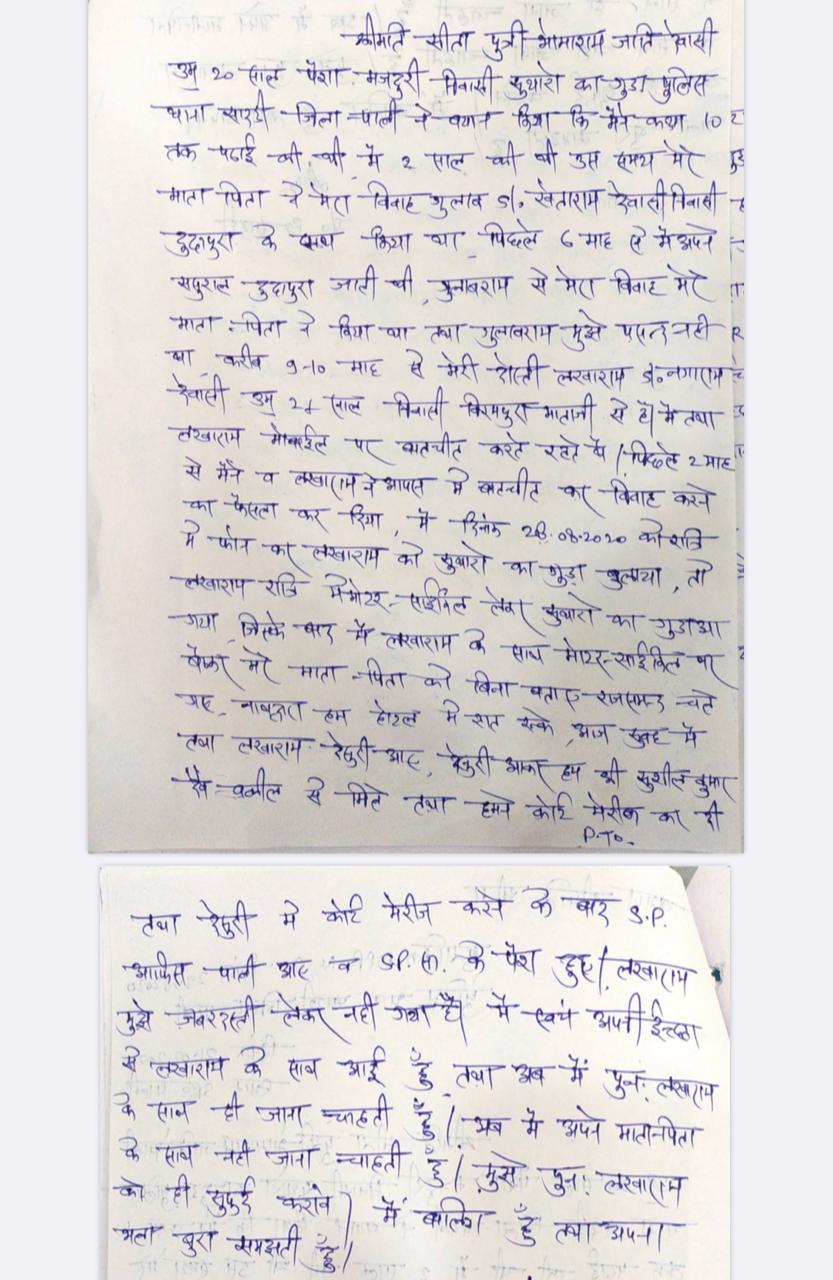 श्रीमति सीता पुत्री भोमाराम जाति देवासी
उम्र 20 साल पेशा मजदुरी निवासी सुथारो का गुडा पुलिस
थाना सादडी जिला पाली ने बयान किया कि मैंने कक्षा 10
तक पढाई की थी मैं 2 साल की थी उस समय मेरे
माता पिता ने मेरा विवाह गुलाब S/o खेताराम देवासी निवासी
दुदापुरा के साथ किया था पिछले 6 माह से मैं अपने
ससुराल दुदापुरा जाती थी गुलाबराम से मेरा विवाह मेरे
माता-पिता ने किया था तथा गुलाबराम मुझे पसन्द नही
था करीब 9-10 माह से मेरी दोस्ती लखाराम S/o नगाराम
देवासी उम्र 21 साल निवासी बिरमपुरा माताजी से है। मैं तथा
लखाराम मोबाईल पर बातचीत करते रहते थे। पिछले 2 माह
से मैंने व लखाराम ने आपस मे बातचीत कर विवाह करने
का फैसला कर दिया, मैं दिनांक 28.08.2020 को रात्रि
मे फोन कर लखाराम को सुथारो का गुडा बुलाया, तो
लखाराम रात्रि मे मोटर-साईकिल लेकर सुथारो का गुडा आ
गया जिसके बाद मैं लखाराम के साथ मोटर-साईकिल पर
बैठकर मेरे माता-पिता को बिना बताए राजसमन्द चले
गए हम होटल मे रात रूके, आज सुबह मैं
तथा लखाराम देसुरी आए, देसुरी आकर हम श्री सुशील कुमार
वकील से मिले तथा हमने कोर्ट मेरीज कर दी
P.T.O.
तथा देसुरी मे कोर्ट मेरीज करने के बाद S.P.
आफिस पाली आए व S.P. सा. के पेश हुए। लखाराम
मुझे जबरदस्ती लेकर नही गया है। मैं स्वयं अपनी ईच्छा
से लखाराम के साथ आई हुँ तथा अब मैं पुनः लखाराम
के साथ ही जाना चाहती हुँ। अब मैं अपने माता-पिता
के साथ नही जाना चाहती हुँ। मुझे पुनः लखाराम
को ही सुपुर्द करावे। मैं बालिग हुँ तथा अपना
भला बुरा समझती हुँ।